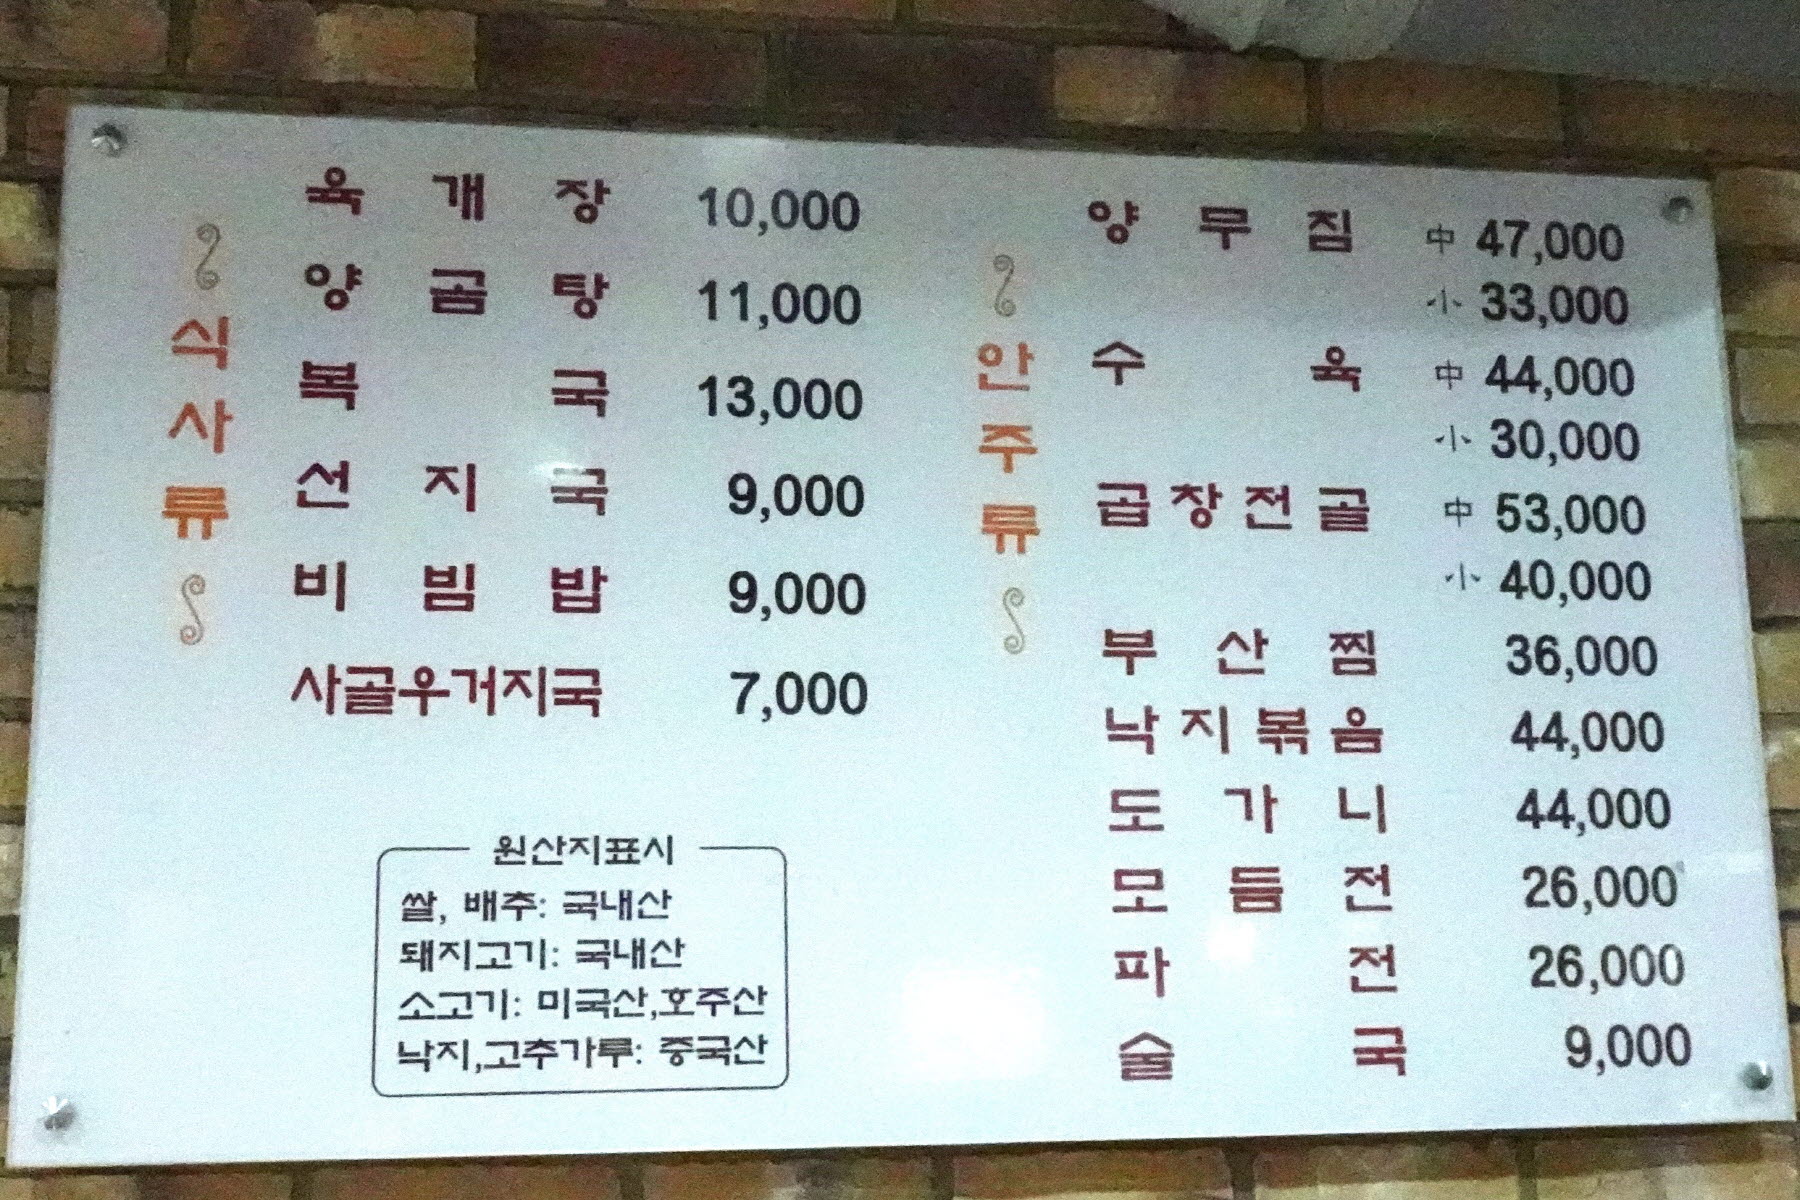 식사류
육개장 10,000
양곰탕 11,000
복국 13,000
선지국 9,000
비빔밥 9,000
사골우거지국 7,000
원산지표시
쌀, 배추: 국내산
돼지고기: 국내산
소고기: 미국산,호주산
낙지,고추가루: 중국산
안주류
양무침 中 47,000
小 33,000
수육 中 44,000
小 30,000
곱창전골 中 53,000
小 40,000
부산찜 36,000
낙지볶음 44,000
도가니 44,000
모듬전 26,000
파전 26,000
술국 9,000